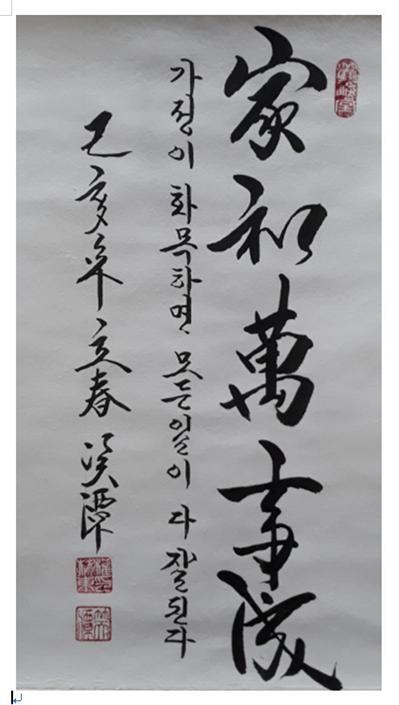 家和萬事成
가정이 화목하면 모든일이 다 잘된다
己亥年立春